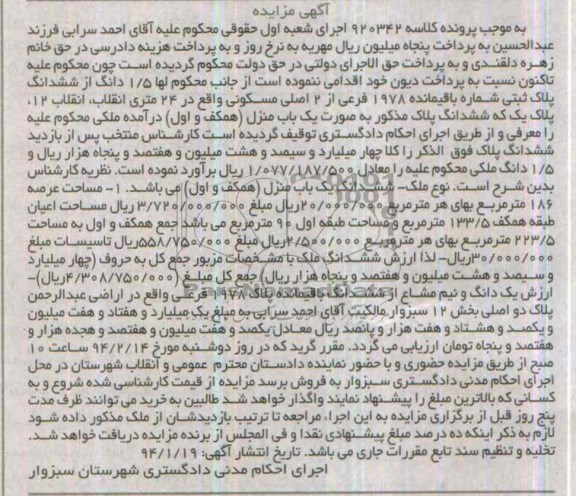 آگهی مزایده
به موجب پرونده کلاسه ۹۲۰۳۴۲ اجرای شعبه اول حقوقی محکوم علیه آقای احمد سرابی فرزند
عبدالحسین به پرداخت پنجاه میلیون ریال مهریه به نرخ روز و به پرداخت هزینه دادرسی در حق خانم
زهره دلقندی و به پرداخت حق الاجرای دولتی در حق دولت محکوم گردیده است چون محکوم علیه
تاکنون نسبت به پرداخت دیون خود اقدامی ننموده است از جانب محکوم لها ۱/۵ دانگ از ششدانگ
پلاک ثبتی شماره باقیمانده ۱۹۷۸ فرعی از ۲ اصلی مسکونی واقع در ۲۴ متری انقلاب، انقلاب ۱۲،
پلاک یک که ششدانگ پلاک مذکور به صورت یک باب منزل (همکف و اول) درآمده ملکی محکوم علیه
را معرفی و از طریق اجرای احکام دادگستری توقیف گردیده است کارشناس منتخب پس از بازدید
ششدانگ پلاک فوق الذکر را کلا چهار میلیارد و سیصد و هشت میلیون و هفتصد و پنجاه هزار ریال و
۱/۵ دانگ ملکی محکوم علیه را معادل ۱/۰۷۷/۱۸۷/۵۰۰ ریال برآورد نموده است. نظریه کارشناس
بدین شرح است. نوع ملک- ششدانگ یک باب منزل (همکف و اول) می باشد. ۱- مساحت عرصه
۱۸۶ مترمربع بهای هر مترمربع ۲۰/۰۰۰/۰۰۰ ریال مبلغ ۳/۷۲۰/۰۰۰/۰۰۰ ریال مساحت اعیان
طبقه همکف ۱۳۳/۵ مترمربع و مساحت طبقه اول ۹۰ مترمربع می باشد جمع همکف و اول به مساحت
۲۲۳/۵ مترمربع بهای هر مترمربع ۲/۵۰۰/۰۰۰ ریال مبلغ ۵۵۸/۷۵۰/۰۰۰ریال تاسیسات مبلغ
۳۰/۰۰۰/۰۰۰ریال- لذا ارزش ششدانگ ملک با مشخصات مزبور جمع کل به حروف (چهار میلیارد
و سیصد و هشت میلیون و هفتصد و پنجاه هزار ریال) جمع کل مبلغ (۴/۳۰۸/۷۵۰/۰۰۰ریال)-
ارزش یک دانگ و نیم مشاع از ششدانگ باقیمانده پلاک ۱۹۷۸ فرعی واقع در اراضی عبدالرحمن
پلاک دو اصلی بخش ۱۲ سبزوار مالکیت آقای احمد سرابی به مبلغ یک میلیارد و هفتاد و هفت میلیون
و یکصد و هشتاد و هفت هزار و پانصد ریال معادل یکصد و هفت میلیون و هفتصد و هجده هزار و
هفتصد و پنجاه تومان ارزیابی می گردد. مقرر گرید که در روز دوشنبه مورخ ۹۴/۲/۱۴ ساعت ۱۰
صبح از طریق مزایده حضوری و با حضور نماینده دادستان محترم عمومی و انقلاب شهرستان در محل
اجرای احکام مدنی دادگستری سبزوار به فروش برسد مزایده از قیمت کارشناسی شده شروع و به
کسانی که بالاترین مبلغ را پیشنهاد نمایند واگذار خواهد شد طالبین به خرید می توانند ظرف مدت
پنج روز قبل از برگزاری مزایده به این اجرا، مراجعه تا ترتیب بازدیدشان از ملک مذکور داده شود
لازم به ذکر اینکه ده درصد مبلغ پیشنهادی نقدا و فی المجلس از برنده مزایده دریافت خواهد شد.
تخلیه و تنظیم سند تابع مقررات جاری می باشد. تاریخ انتشار آگهی: ۹۴/۱/۱۹
اجرای احکام مدنی دادگستری شهرستان سبزوار